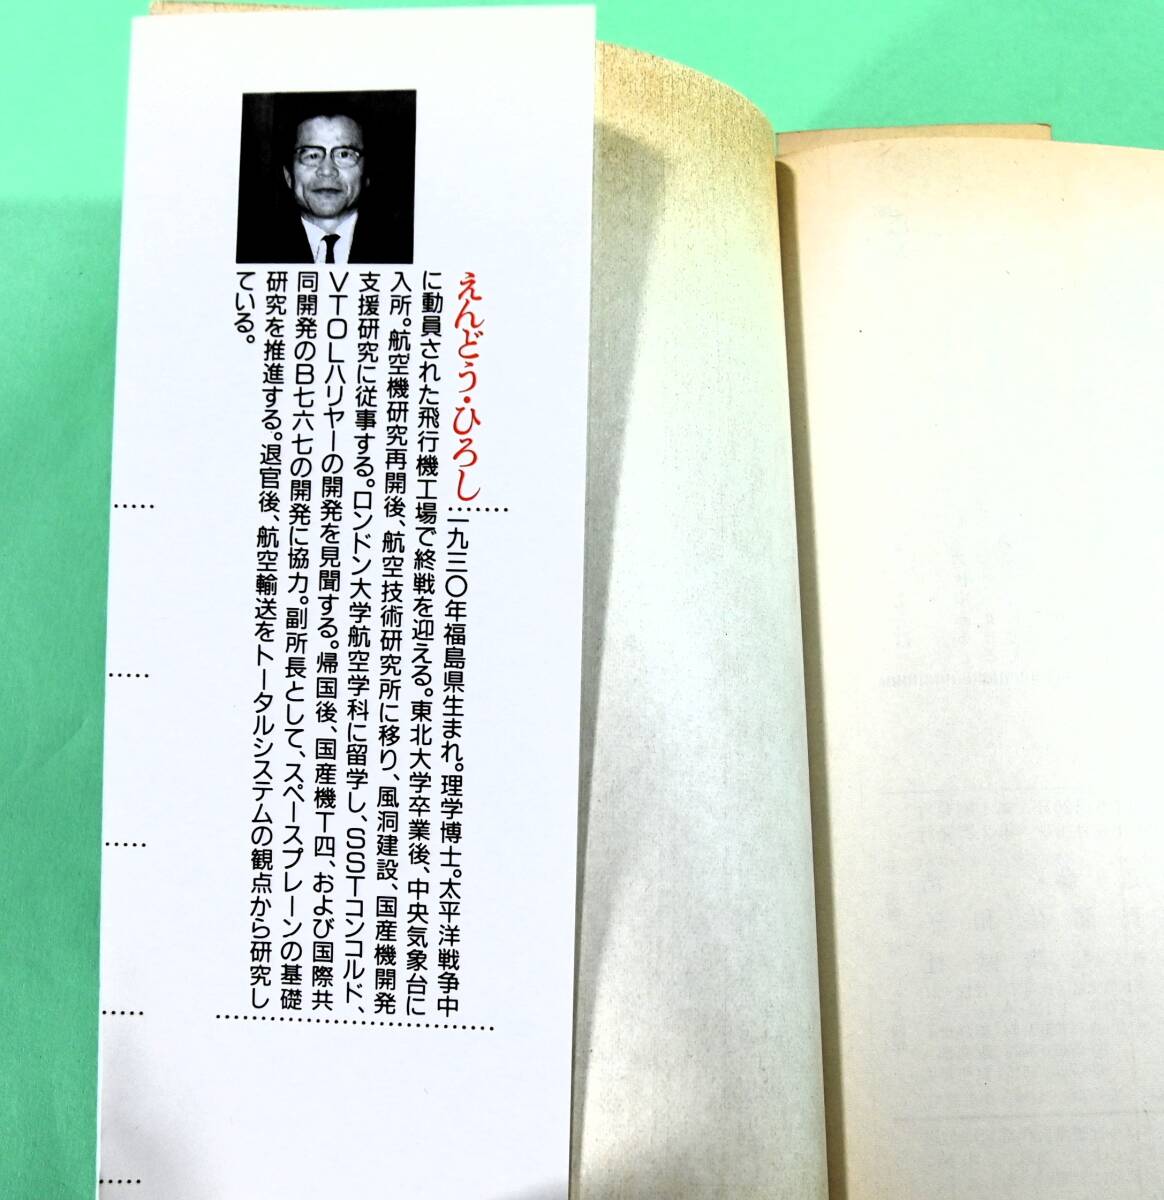 えんどう・ひろし
一九三〇年福島県生まれ。理学博士。太平洋戦争中
に動員された飛行機工場で終戦を迎える。東北大学卒業後、中央気象台に
入所。航空機研究再開後、航空技術研究所に移り、風洞建設、国産機開発
支援研究に従事する。ロンドン大学航空学科に留学し、SSTコンコルド、
VTOLハリヤーの開発を見聞する。帰国後、国産機T四、および国際共
同開発のB七六七の開発に協力。副所長として、スペースプレーンの基礎
研究を推進する。退官後、航空輸送をトータルシステムの観点から研究し
ている。